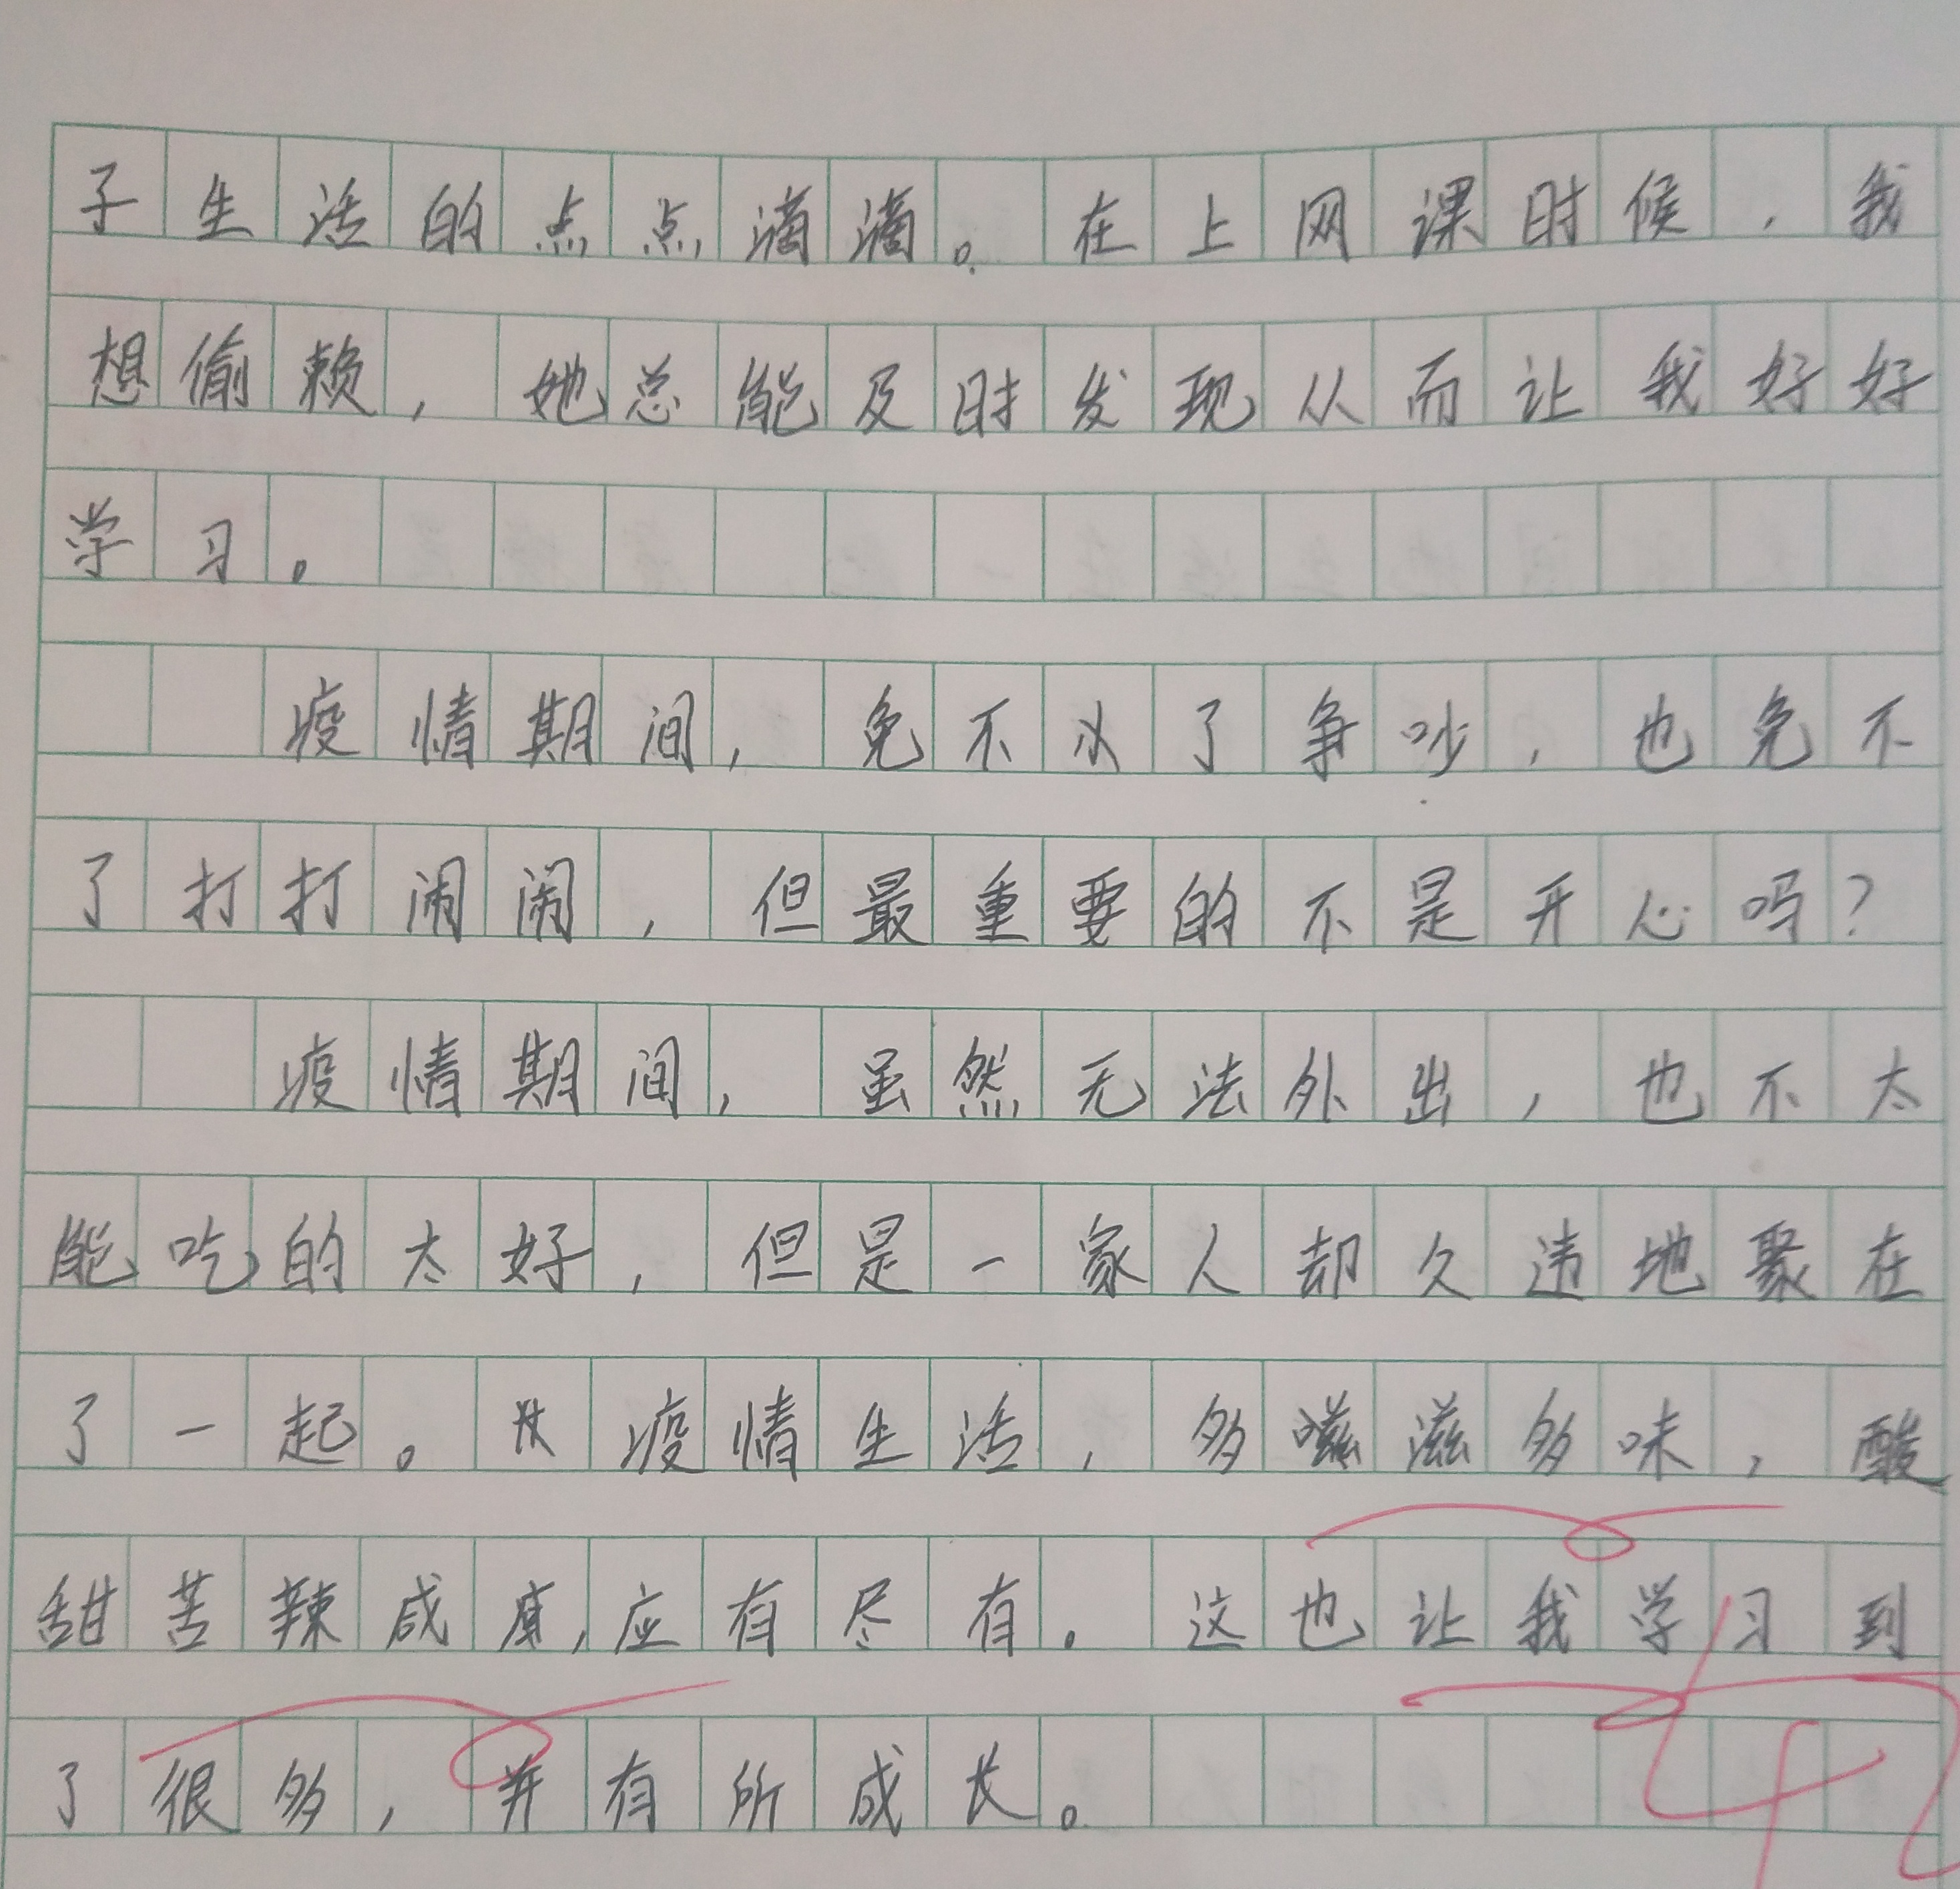 子生活的点点滴滴。在上网课时候，我
想偷赖，她总能及时发现从而让我好好
学习。
疫情期间，免不了争吵，也免不
了打打闹闹，但最重要的不是开心吗？
疫情期间，虽然无法外出，也不太
能吃的太好，但是一家人却久违地聚在
了一起。疫情生活，多嗞滋多味，酸
甜苦辣咸，应有尽有。这也让我学习到
了很多，并有所成长。